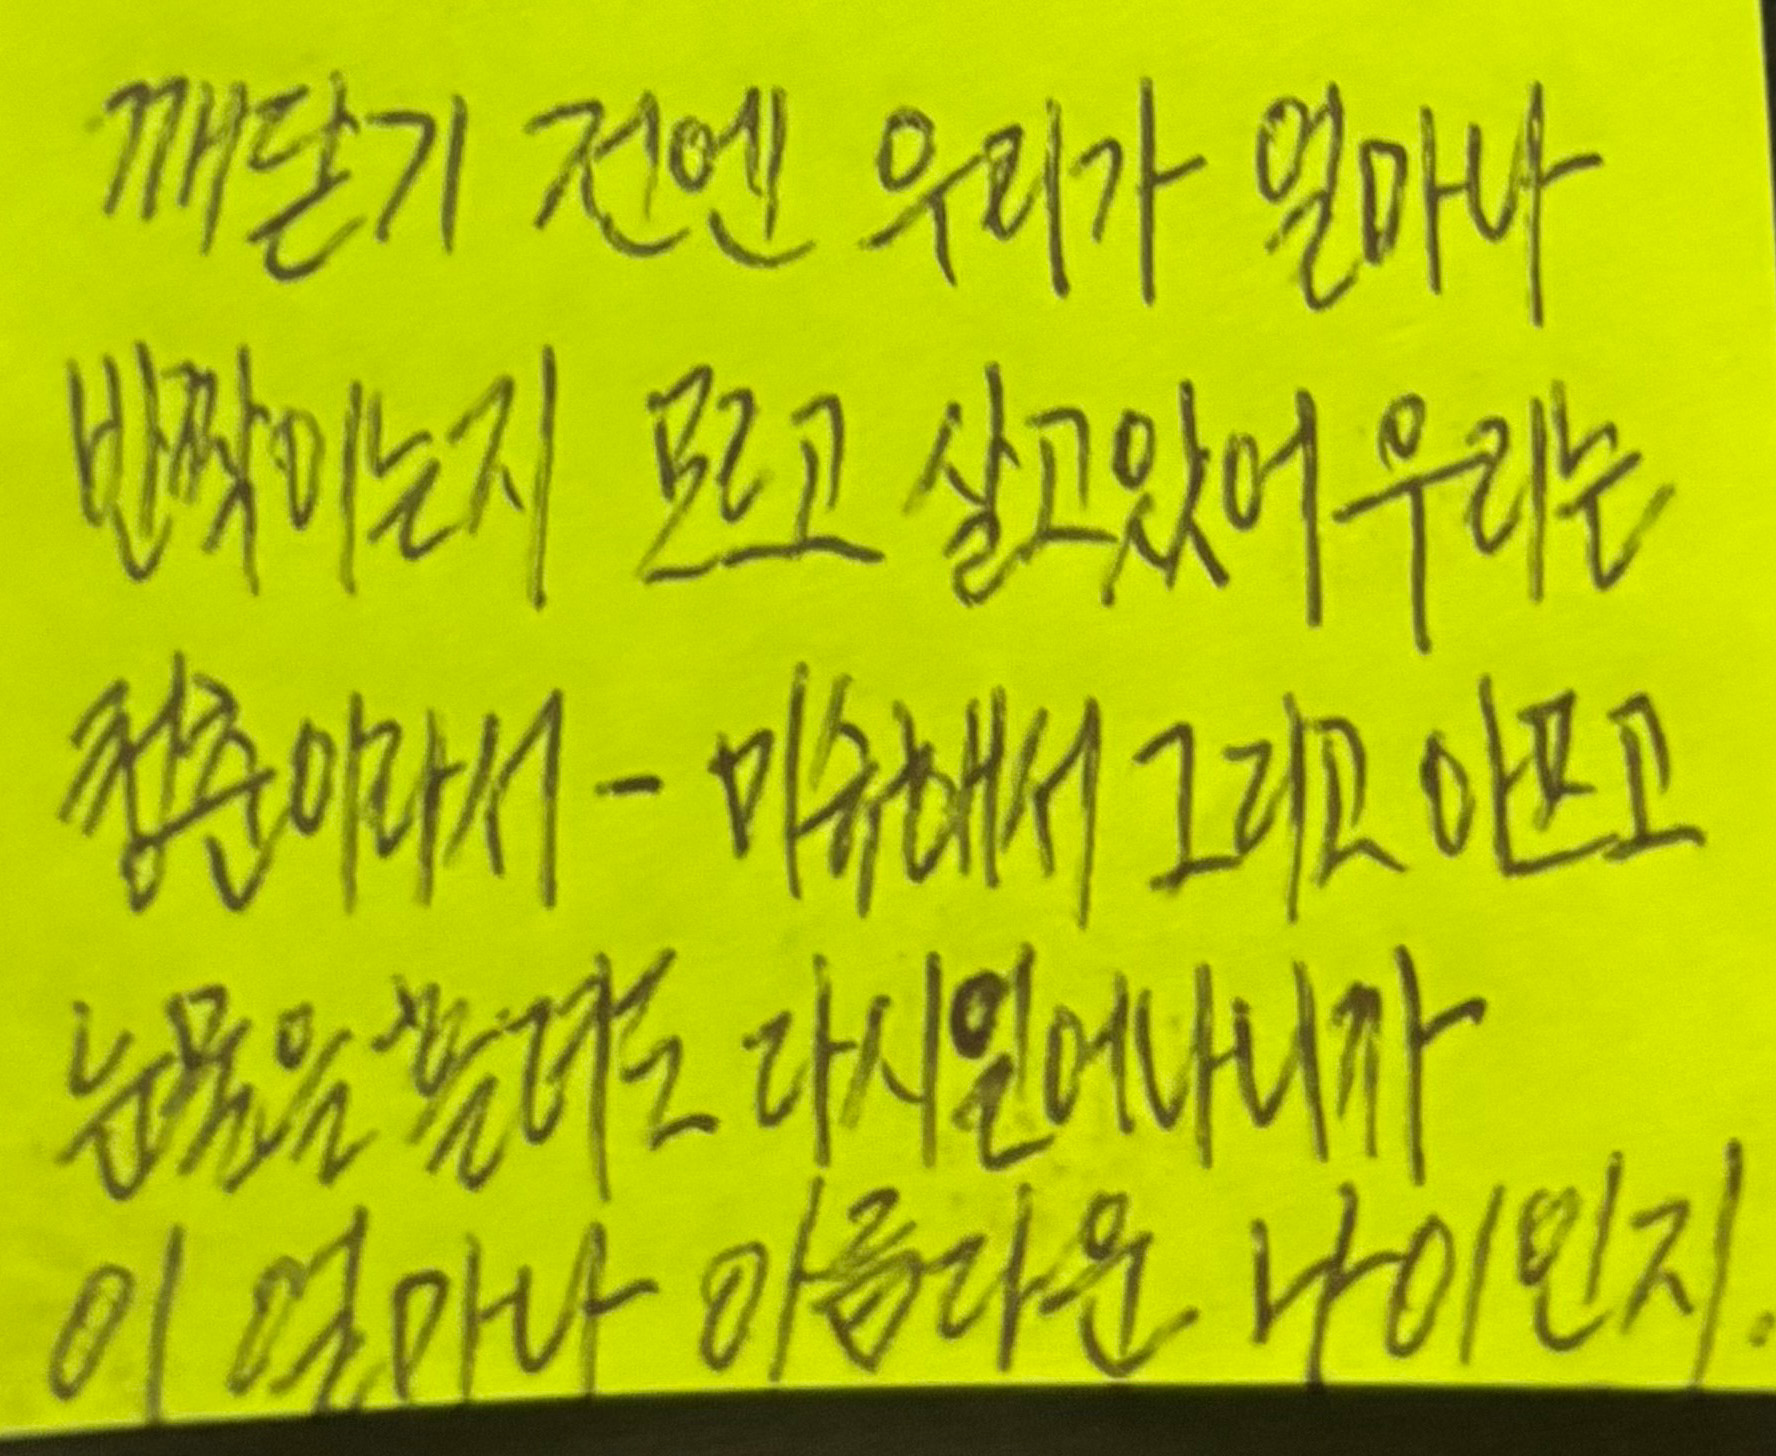 깨닫기 전엔 우리가 얼마나
반짝이는지 모르고 살고있어 우리는
청춘이라서 - 미숙해서 그리고 아프고
눈물을 흘려도 다시일어나니까
이 얼마나 아름다운 나이인지.